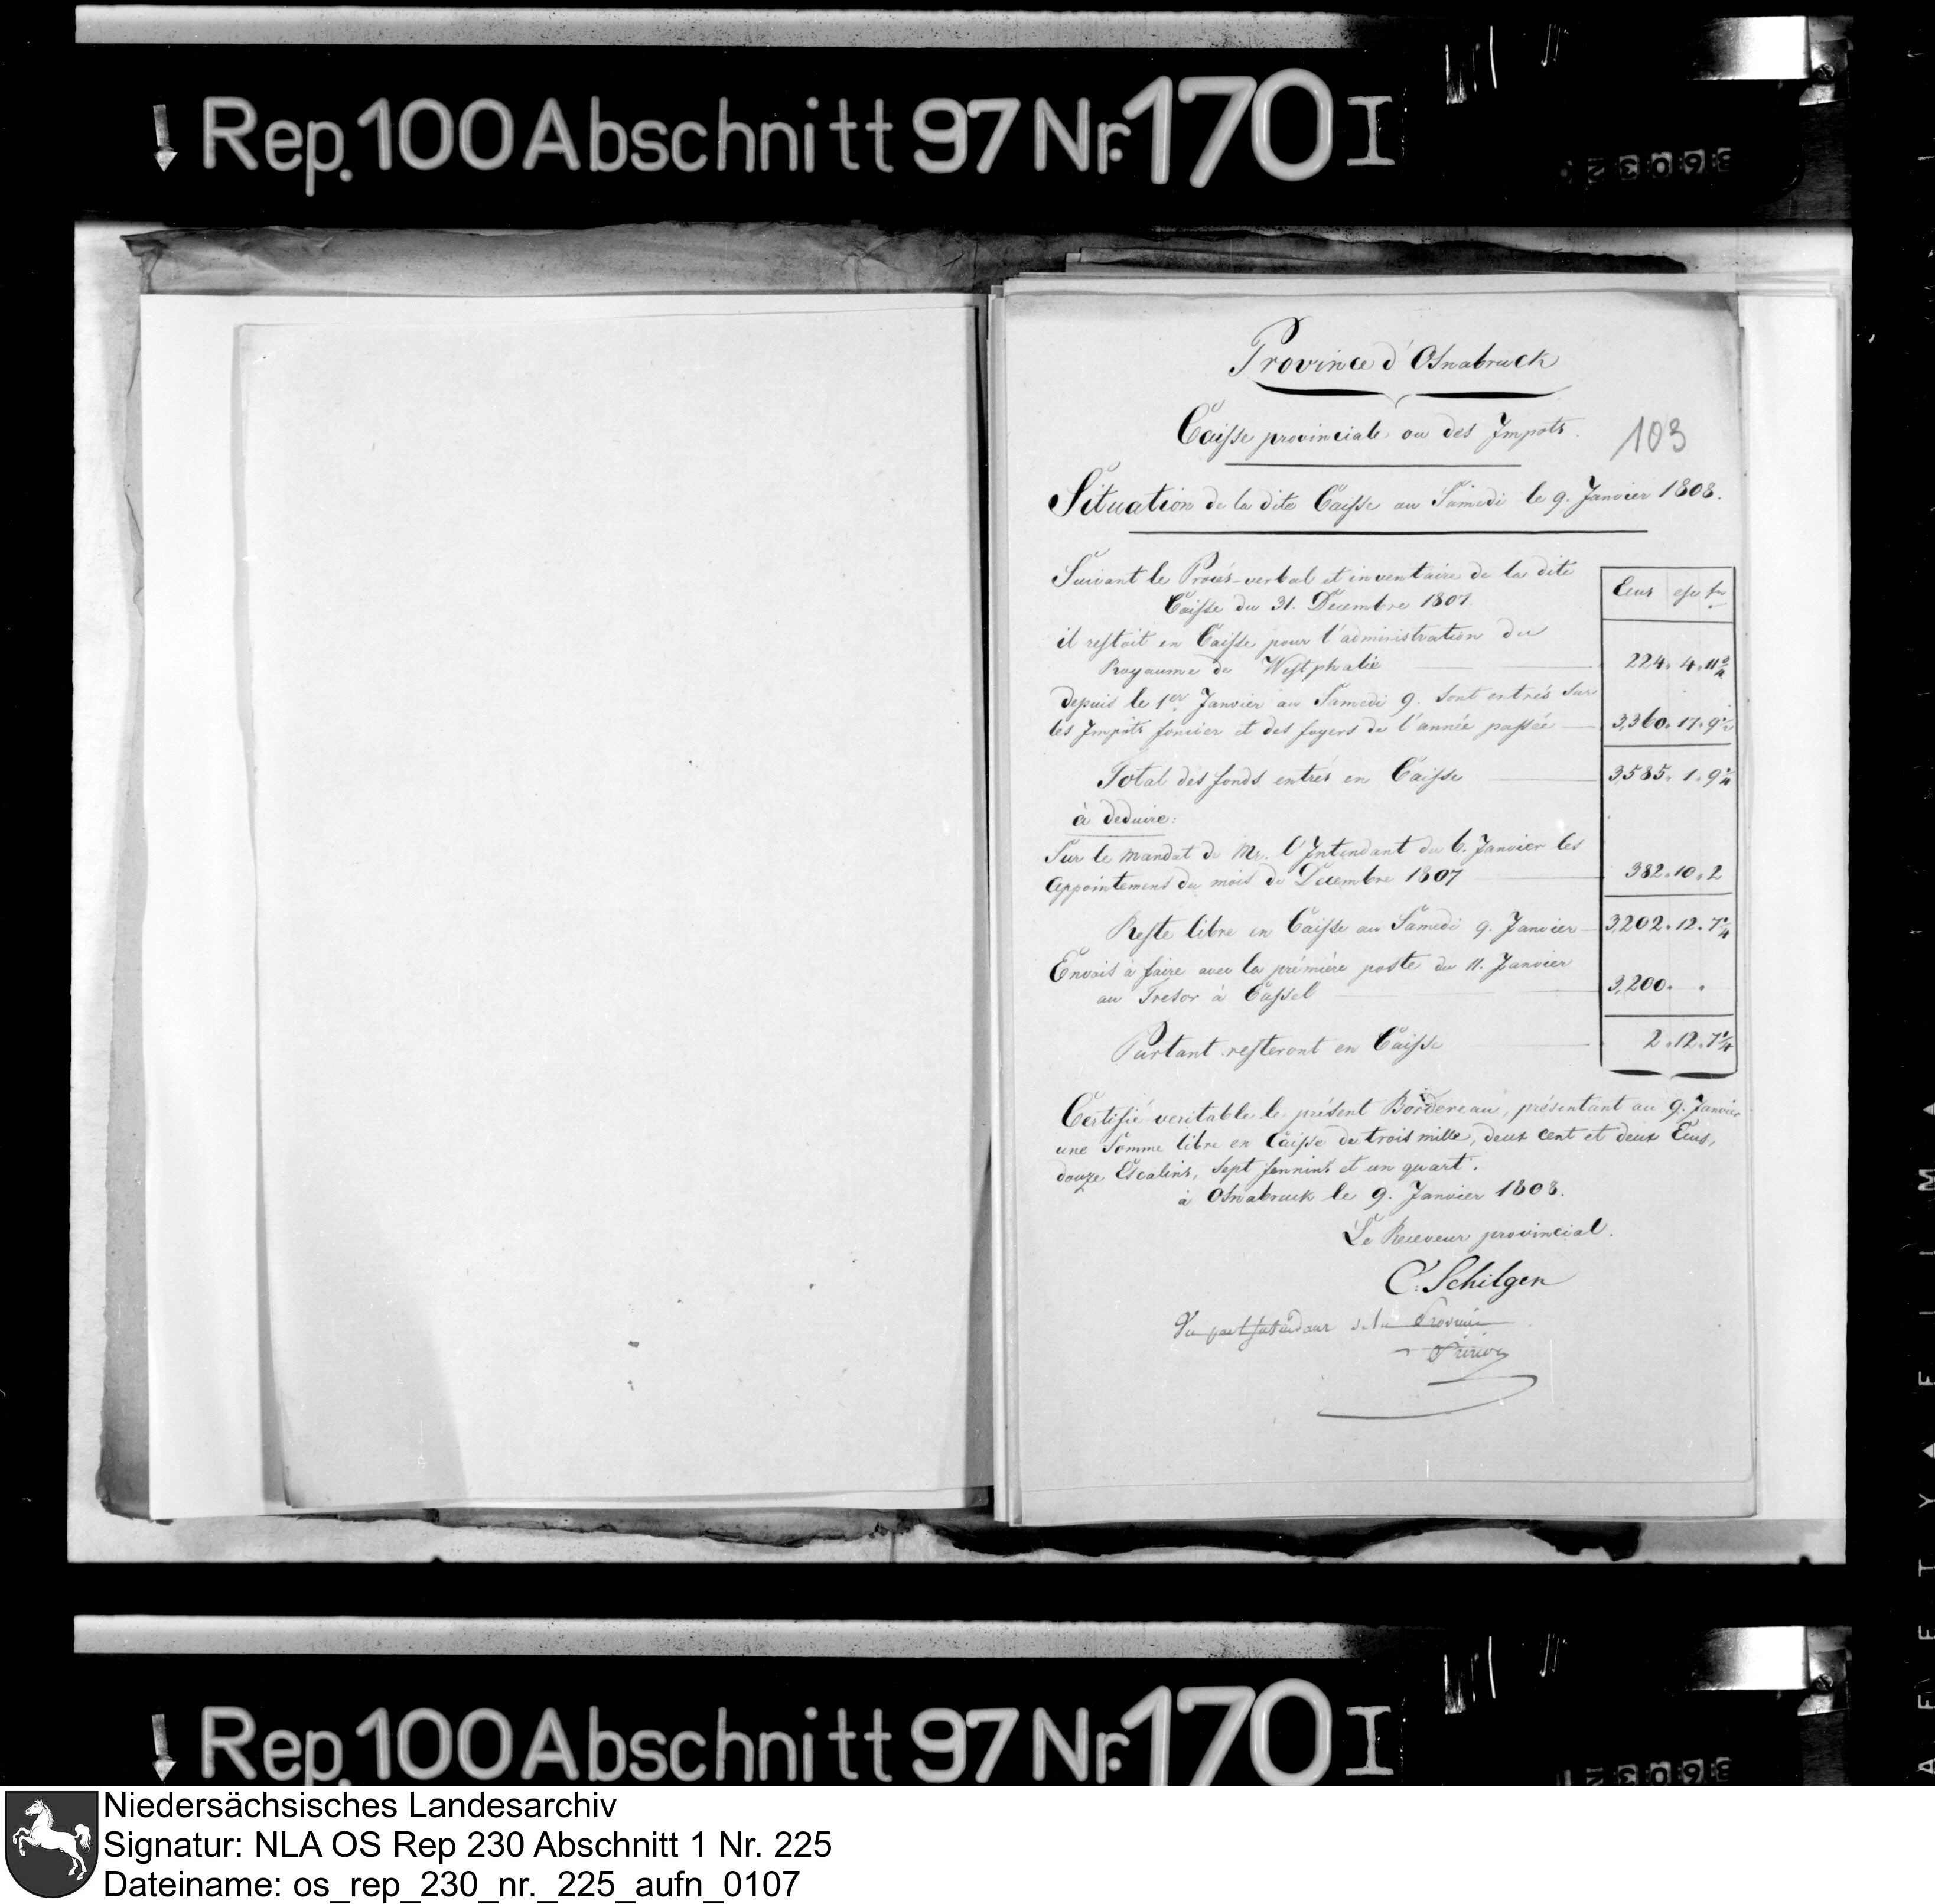 Rep. 100 Abschnitt 97 Nr. 170 I
Province d'Osnabruck
Caisse provinciale ou des Impots.
103
Situation de la dite Caisse au Samedi le 9. Janvier 1808.
Suivant le Procès-verbal et inventaire de la dite
Caisse du 31. Decembre 1807.
Ecus
il restoit en Caisse pour l'administration du
Royaume de Westphalie 224. 4. 11 3/4
depuis le 1er Janvier au Samedi 9. sont entrés sur
les Impôts foncier et des foyers de l'année passée 3,360. 17. 9 1/2
Total des fonds entrés en Caisse 3,585. 1. 9 1/4
à deduire:
Sur le mandat de Mr. l'Intendant du 6. Janvier les
appointemens du mois de Decembre 1807 382. 10. 2
Reste libre en Caisse au Samedi 9. Janvier 3,202. 12. 7 1/4
Envois à faire avec la première poste du 11. Janvier
au Tresor à Cassel 3,200. .
Partant resteront en Caisse 2. 12. 7 1/4
Certifié veritable le présent Bordereau, présentant au 9. Janvier
une Somme libre en Caisse de trois mille, deux cent et deux Ecus,
douze Escalins, sept fennins et un quart.
à Osnabruck le 9. Janvier 1808.
Le Receveur provincial.
C. Schilgen
Vu par l'Intendant de la Province
Rep. 100 Abschnitt 97 Nr. 170 I
Niedersächsisches Landesarchiv
Signatur: NLA OS Rep 230 Abschnitt 1 Nr. 225
Dateiname: os_rep_230_nr._225_aufn_0107